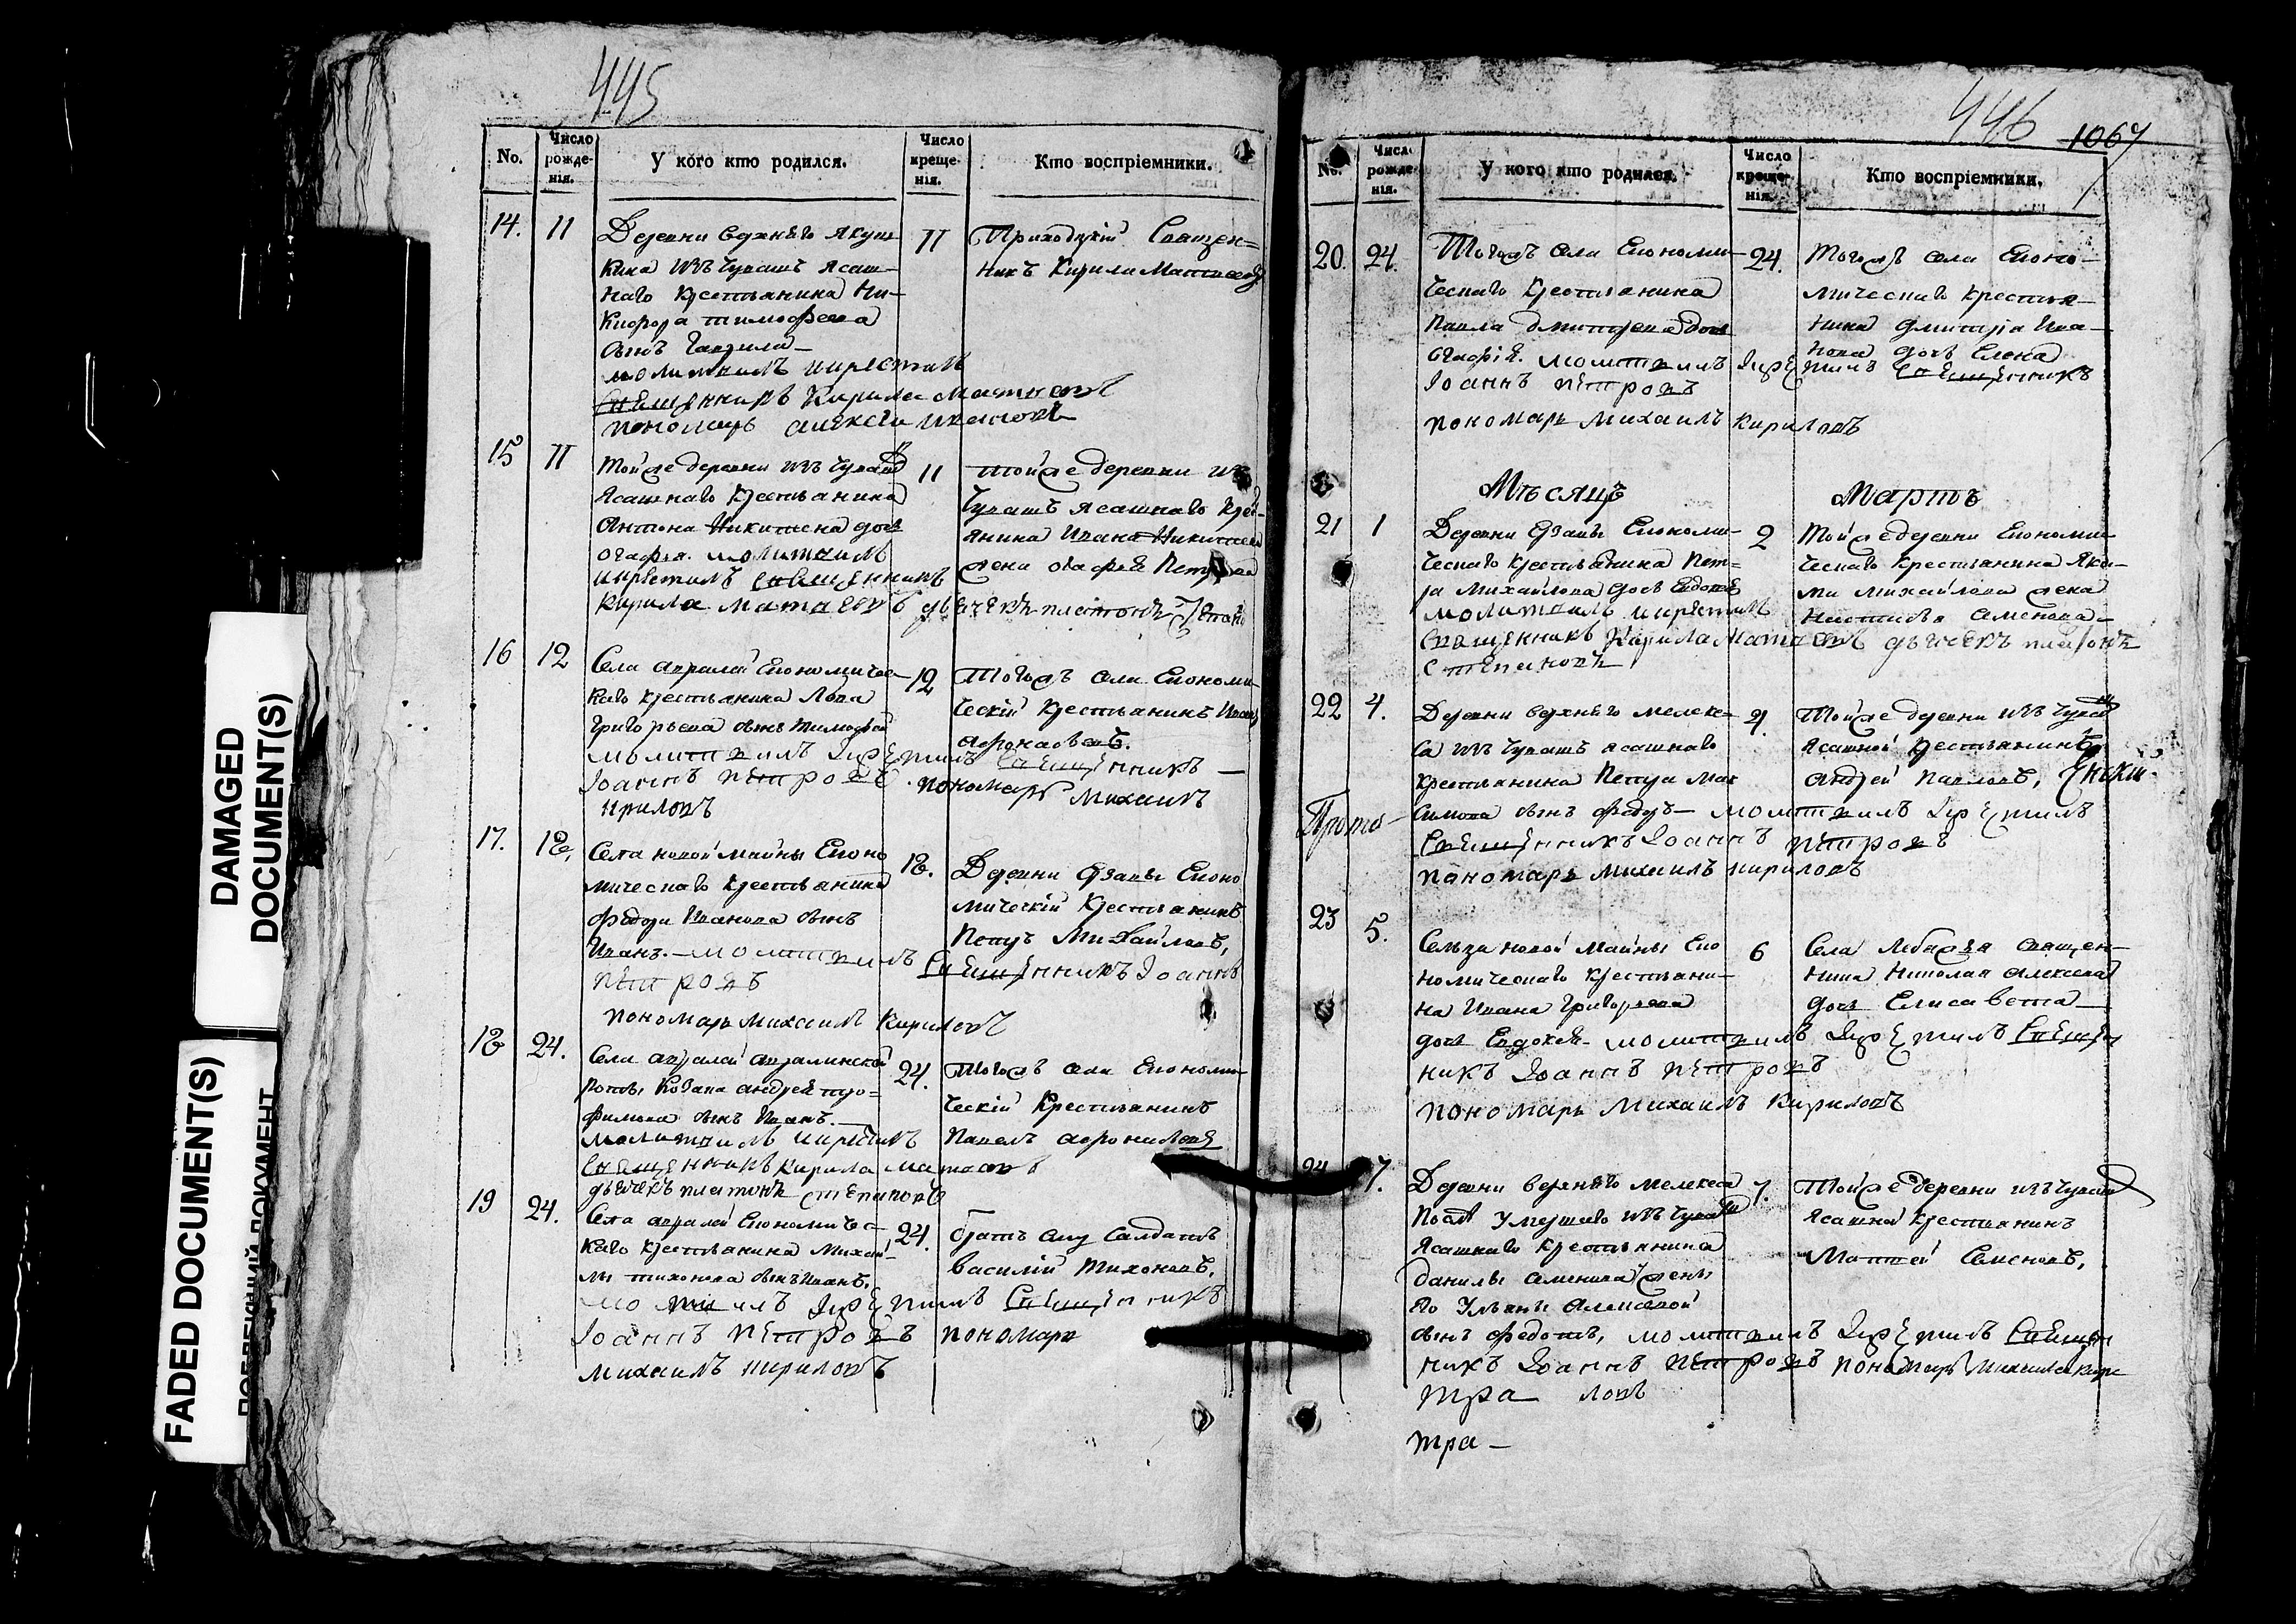 DAMAGED
DOCUMENT(S)
FADED DOCUMENT(S)
445
No.
Число рожде-нія.
У кого кто родился.
Число креще-нія.
Кто воспріемники.
14.
11
Деревни верхнѣго Якуш
кина изъ Чувашъ ясаш-
наго крестьянина Ни-
кифора тимофеева
сынъ Гаврила-
молитвилъ икрестилъ
священникъ Кирила Матвеевъ
пономарь алексеи
11
Приходцкій Священ=
никъ Кирила Матвеевъ
15
11
Тойже деревни изъ Чувашъ
Ясашнаго крестьанина
Антона Никитена дочь
огафья. молитвилъ
икрестилъ священникъ
Кирила Матвеевъ дьячекъ платонъ
11
тойже деревни изъ
Чувашъ ясашнаго крес
янина Ивана Никитена
жена огафея Петрова
16
12
Села авралей Економичес-
каго крестьанина Лва
Григорьева сынъ Тимофей
молитвилъ икрестилъ священникъ
Іоаннъ петровъ. пономарь михаилъ
кириловъ
12
Тогожъ села Економи-
ческій крестьанинъ Иванъ
афонасьевъ.
17.
18.
Села новой майны Еконо
мическаго крестьанина
Федора Иванова сынъ
Иванъ.-молитвилъ священникъ Іоаннъ
петровъ
пономарь михаилъ Кириловъ
18.
Деревни Ерзавы Еконо
мическій крестьанинъ
Петръ Михайловъ,
18
24.
Села авралей авралинской
роты Козака андрея тро=
фимова сынъ Иванъ.
молитвилъ икрестилъ
священникъ Кирила матвеевъ
дьячекъ платонъ степановъ
24.
Тогожъ села Економи-
ческій крестьанинъ
Павелъ
19
24.
Села авралей Економичес-
каго крестьанина Михай-
лы тихонова сынъ Иванъ.
молитвилъ икрестилъ священникъ
Іоаннъ петровъ пономарь
михаилъ кириловъ
24.
братъ ему салдатъ
василій тихоновъ.
446
1067
No.
Число рожде-нія.
У кого кто родился.
Число креще-нія.
Кто воспріемники.
20.
24.
Тогожъ села Економи-
ческаго крестьанина
Павла дмитрева дочь
огафія. молитвилъ икрестилъ священникъ
Іоаннъ петровъ
пономарь михаилъ кириловъ
24.
тогожъ села Еконо-
мическаго крестья-
нина дмитрія Ива-
нова дочь Елена
Мѣсяцъ
Мартъ
21
1
Деревни Ерзавы Економи-
ческаго крестьанина Пет=
ра Михайлова дочь Евдокея
молитвилъ икрестилъ
священникъ Кирила Матвеевъ дьячекъ платонъ
степановъ
2
Тойже деревни Економи-
ческаго крестьанина Яки-
ма михайлова жена
Настасья Семенова-
22
4.
Деревни верхнѣго мелеке-
са изъ Чувашъ ясашнаго
крестьанина Петра Мак
симова сынъ федоръ- молитвилъ икрестилъ
священникъ Іоаннъ петровъ
пономарь михаилъ кириловъ
4.
Тойже деревни изъ Чувашъ
Ясашной крестьанинъ
андрей павловъ,
Прото-
23
5.
Сельца новой майны Еко
номическаго крестьани-
на Ивана Григорьева
дочь Евдокея- молитвилъ икрестилъ священ
никъ Іоаннъ петровъ
пономарь михаилъ кириловъ
6
Села Лебяжья священ-
ника Николая алексеева
дочь Елисавета-
24
7.
Деревни верхнѣго мелекеса
послѣ умершаго изъ Чувашъ
Ясашнаго крестьанина
данилы семенова жены
его Ульяны алексевой
сынъ федотъ, молитвилъ икрестилъ священ
никъ Іоаннъ петровъ пономарь михаила кири
ловъ
7.
Тойже деревни изъ Чувашъ
Ясашной крестьанинъ
Матвей Семеновъ,
тра
тра-